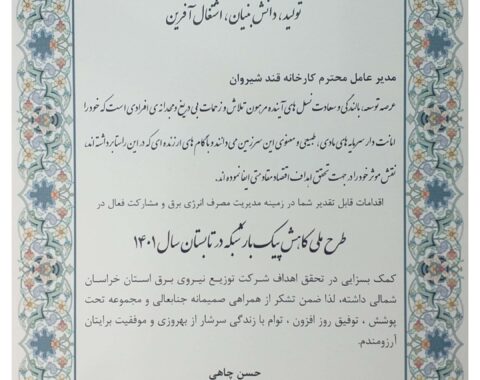 تولید، دانش بنیان، اشتغال آفرین
مدیر عامل محترم کارخانه قند شیروان
عرصه توسعه، بالندگی و سعادت نسل های آینده مرهون تلاش و زحمات بی دریغ و مجدانه ی افرادی است که خود را
امانت دار سرمایه های مادی، طبیعی و معنوی این سرزمین می دانند و با گام های ارزنده ای که در این راستا برداشته اند،
نقش موثر خود را در جهت تحقق اهداف اقتصاد مقاومتی ایفا نموده اند.
اقدامات قابل تقدیر شما در زمینه مدیریت مصرف انرژی برق و مشارکت فعال در
طرح ملی کاهش پیک بار شبکه در تابستان سال ۱۴۰۱
کمک بسزایی در تحقق اهداف شرکت توزیع نیروی برق استان خراسان
شمالی داشته، لذا ضمن تشکر از همراهی صمیمانه جنابعالی و مجموعه تحت
پوشش ، توفیق روز افزون ، توام با زندگی سرشار از بهروزی و موفقیت برایتان
آرزومندم.
حسن چاهی